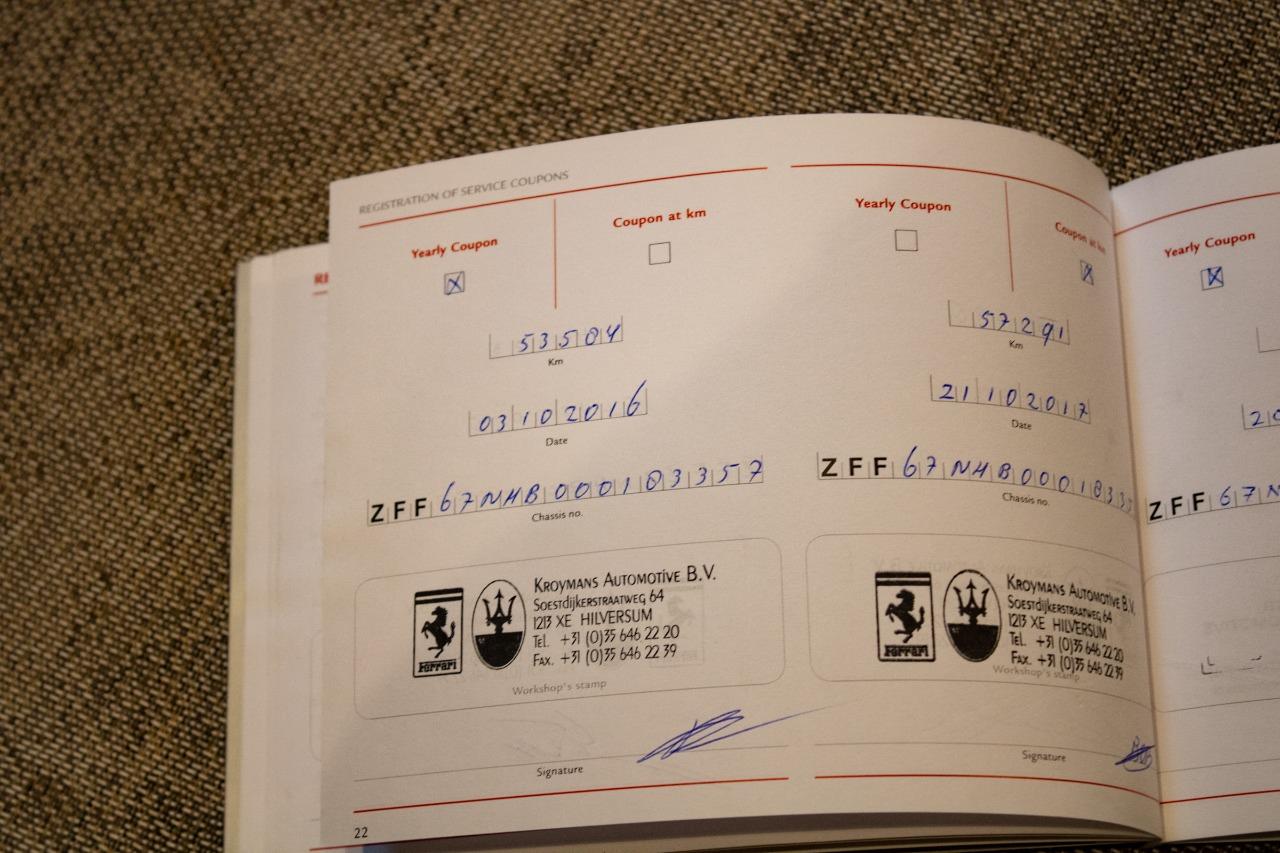 REGISTRATION OF SERVICE COUPONS
Yearly Coupon
Coupon at km
53504
Km
03102016
Date
ZFF67NHB000103357
Chassis no.
Ferrari
KROYMANS AUTOMOTIVE B.V.
SOESTDIJKERSTRAATWEG 64
1213 XE HILVERSUM
TEL. +31 (0)35 646 22 20
FAX. +31 (0)35 646 22 39
Workshop's stamp
Signature
22
Yearly Coupon
Coupon at km
57291
Km
21102017
Date
ZFF67NHB00010335
Chassis no.
Ferrari
KROYMANS AUTOMOTIVE B.V.
SOESTDIJKERSTRAATWEG 64
1213 XE HILVERSUM
TEL. +31 (0)35 646 22 20
FAX. +31 (0)35 646 22 39
Workshop's stamp
Signature
Yearly Coupon
ZFF67N